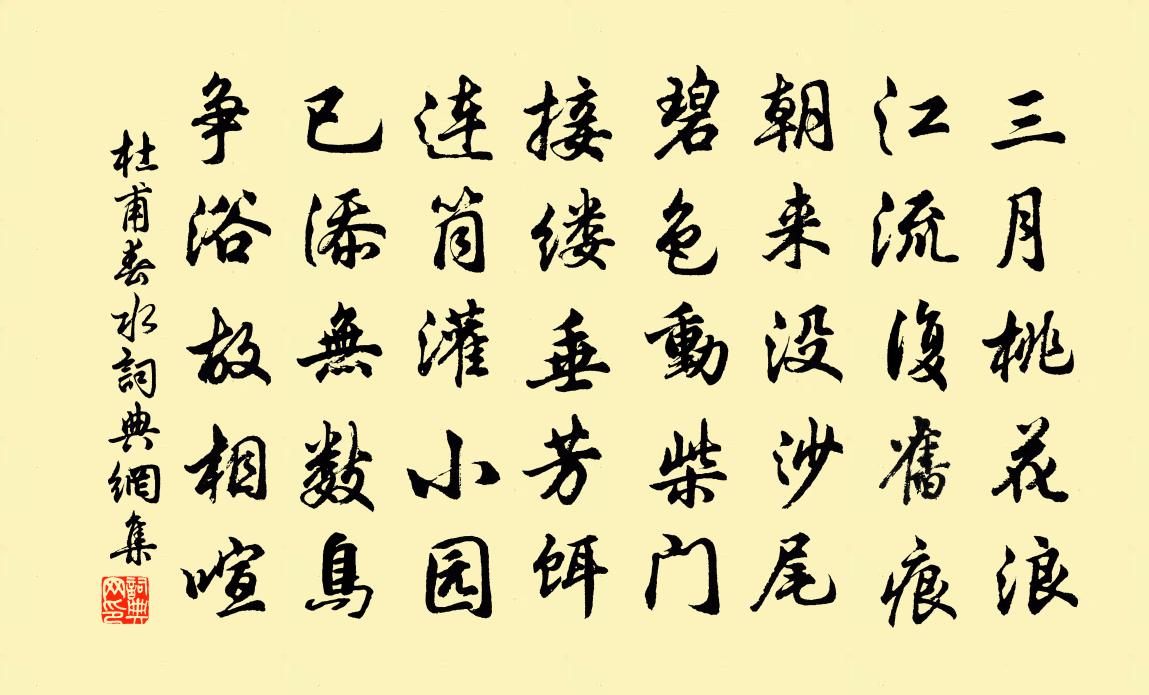 三月桃花浪
江流復舊痕
朝来没沙尾
碧色動柴门
接缕垂芳饵
连筒灌小园
已添無数鳥
争浴故相喧
杜甫春水詞典網集
詞典网印